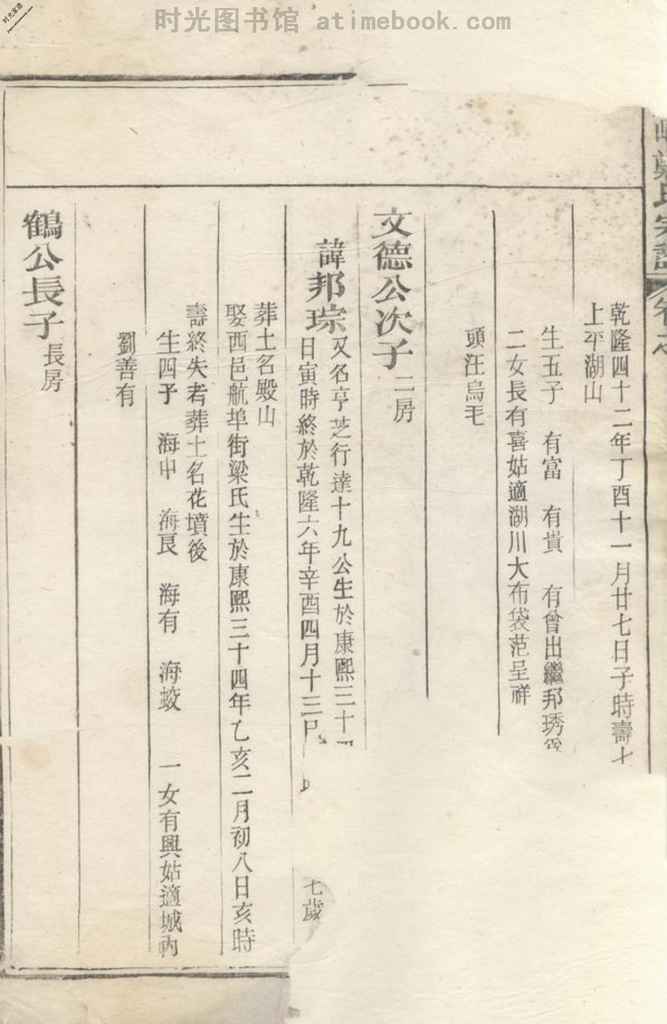 时光图书馆 atimebook.com
氏宗譜
乾隆四十二年丁酉十一月廿七日子時壽七
上平湖山
生五子 有富 有貴 有曾出繼邦琇
二女長有喜姑適湖川大布袋范呈祥
頭汪烏毛
文德公次子 二房
諱邦琮 又名亨芝行達十九公生於康熙三十
日寅時終於乾隆六年辛酉四月十三日
七歲
葬土名殿山
娶西邑航埠街梁氏生於康熙三十四年乙亥二月初八日亥時
壽終失考葬土名花墳後
生四子 海中 海艮 海有 海蛟 一女有興姑適城內
劉善有
鶴公長子 長房